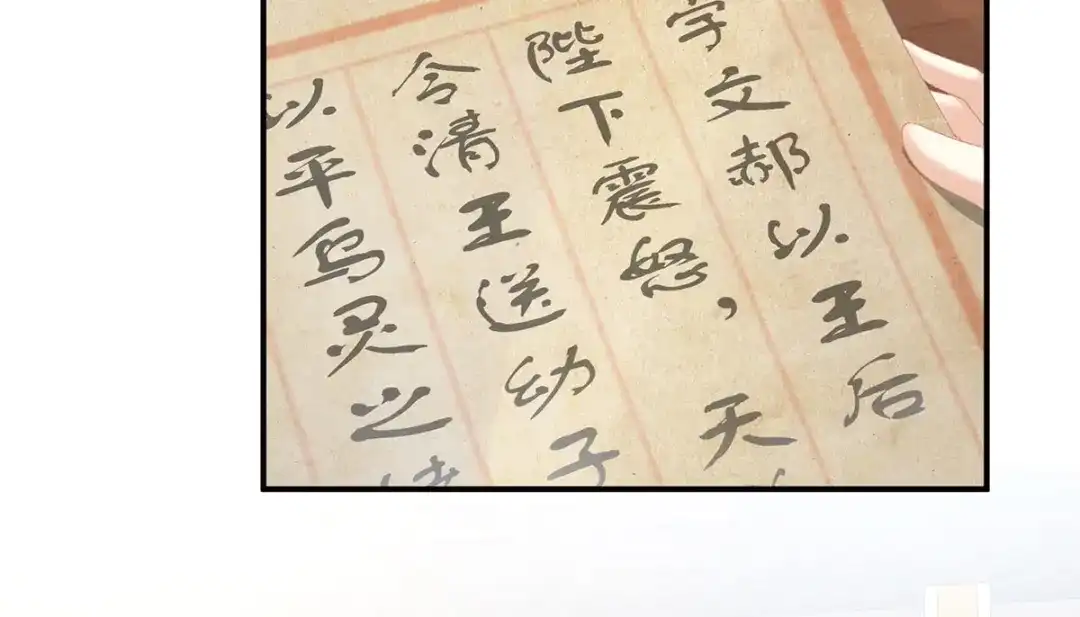 字文郝以王后
陛下震怒，天
令清王送幼子
以平乌灵之